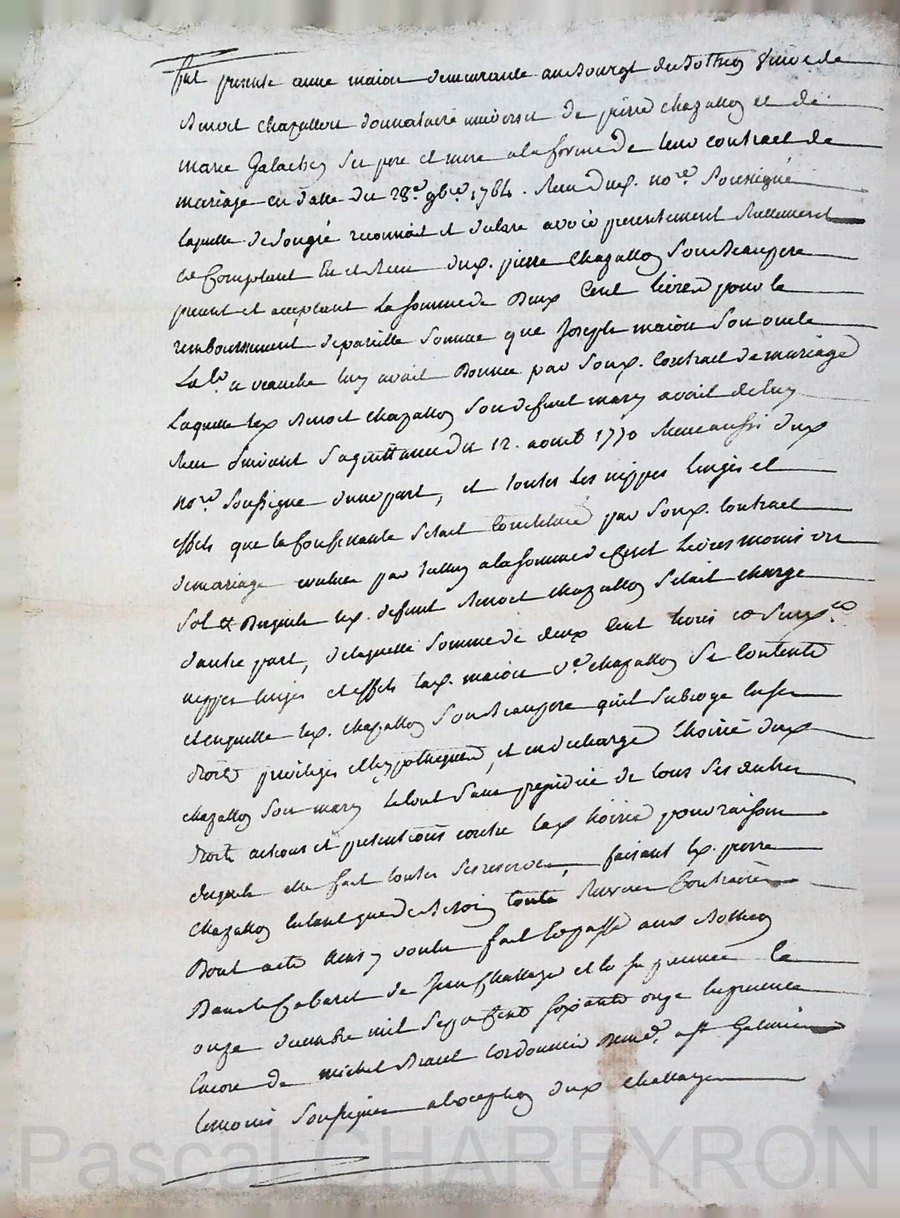 fut presente anne maiou demeurante au Bourgt veuve de
Benoit chazallon donnataire universel de pierre chazallon et de
marie ses pere et mere a la forme de leur contract de
mariage en datte du 28e. 9bre. 1764. Receu dud. nore. Soussigné
laquelle de son gré reconnoit et declare avoir presentement reellement
et Comptant Eu et Receu dud. pierre chazallon Son Beaupere
present et acceptant La Somme de Deux Cent livres pour le
remboursement de pareille Somme que Joseph maiou Son oncle
luy avait Donnee par Sond. Contract de mariage
Laquelle led. Benoit chazallon Son defunt mary avait de luy
Receu Suivant la quittance du 12. aoust 1770 Receue aussi dud.
nore. Soussigné d'une part, et toutes les nippes linges et
effets que la Confessante S'etait Constitué par Sond. Contract
de mariage evalué par a la Somme de Cent Livres moins un
Sol et Desquels led. defunt Benoit chazallon S'etait chargé
d'autre part, de laquelle Somme de deux Cent livres et
nippes linges et effets lad. maiou ve. chazallon Se Contente
et en quitte led. chazallon Son Beaupere qu'il Subroge
droits privileges et hypotheques, et en decharge l'hoirie dud.
chazallon Son mary Le tout Sans prejudice de tous Ses autres
droits actions et pretentions contre lad. hoirie pour raison
desquels elle fait toutes Ses reserves, faisant led. pierre
chazallon toute Reserve Contraire
Dont acte Ainsy voulu fait et passé aud.
Dans le Cabaret de Jean Challaye et le Sa presence le
onze decembre mil Sept Cent Soixante onze En presence
Encore de michel Cordonnier
temoins Soussignes a l'exception dud. Challaye
Pascal CHAREYRON